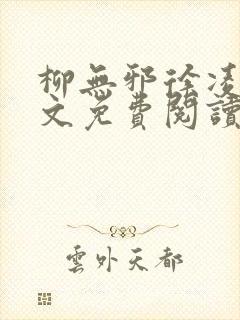 柳無邪徐凌
文免費閱讀
雲外天都